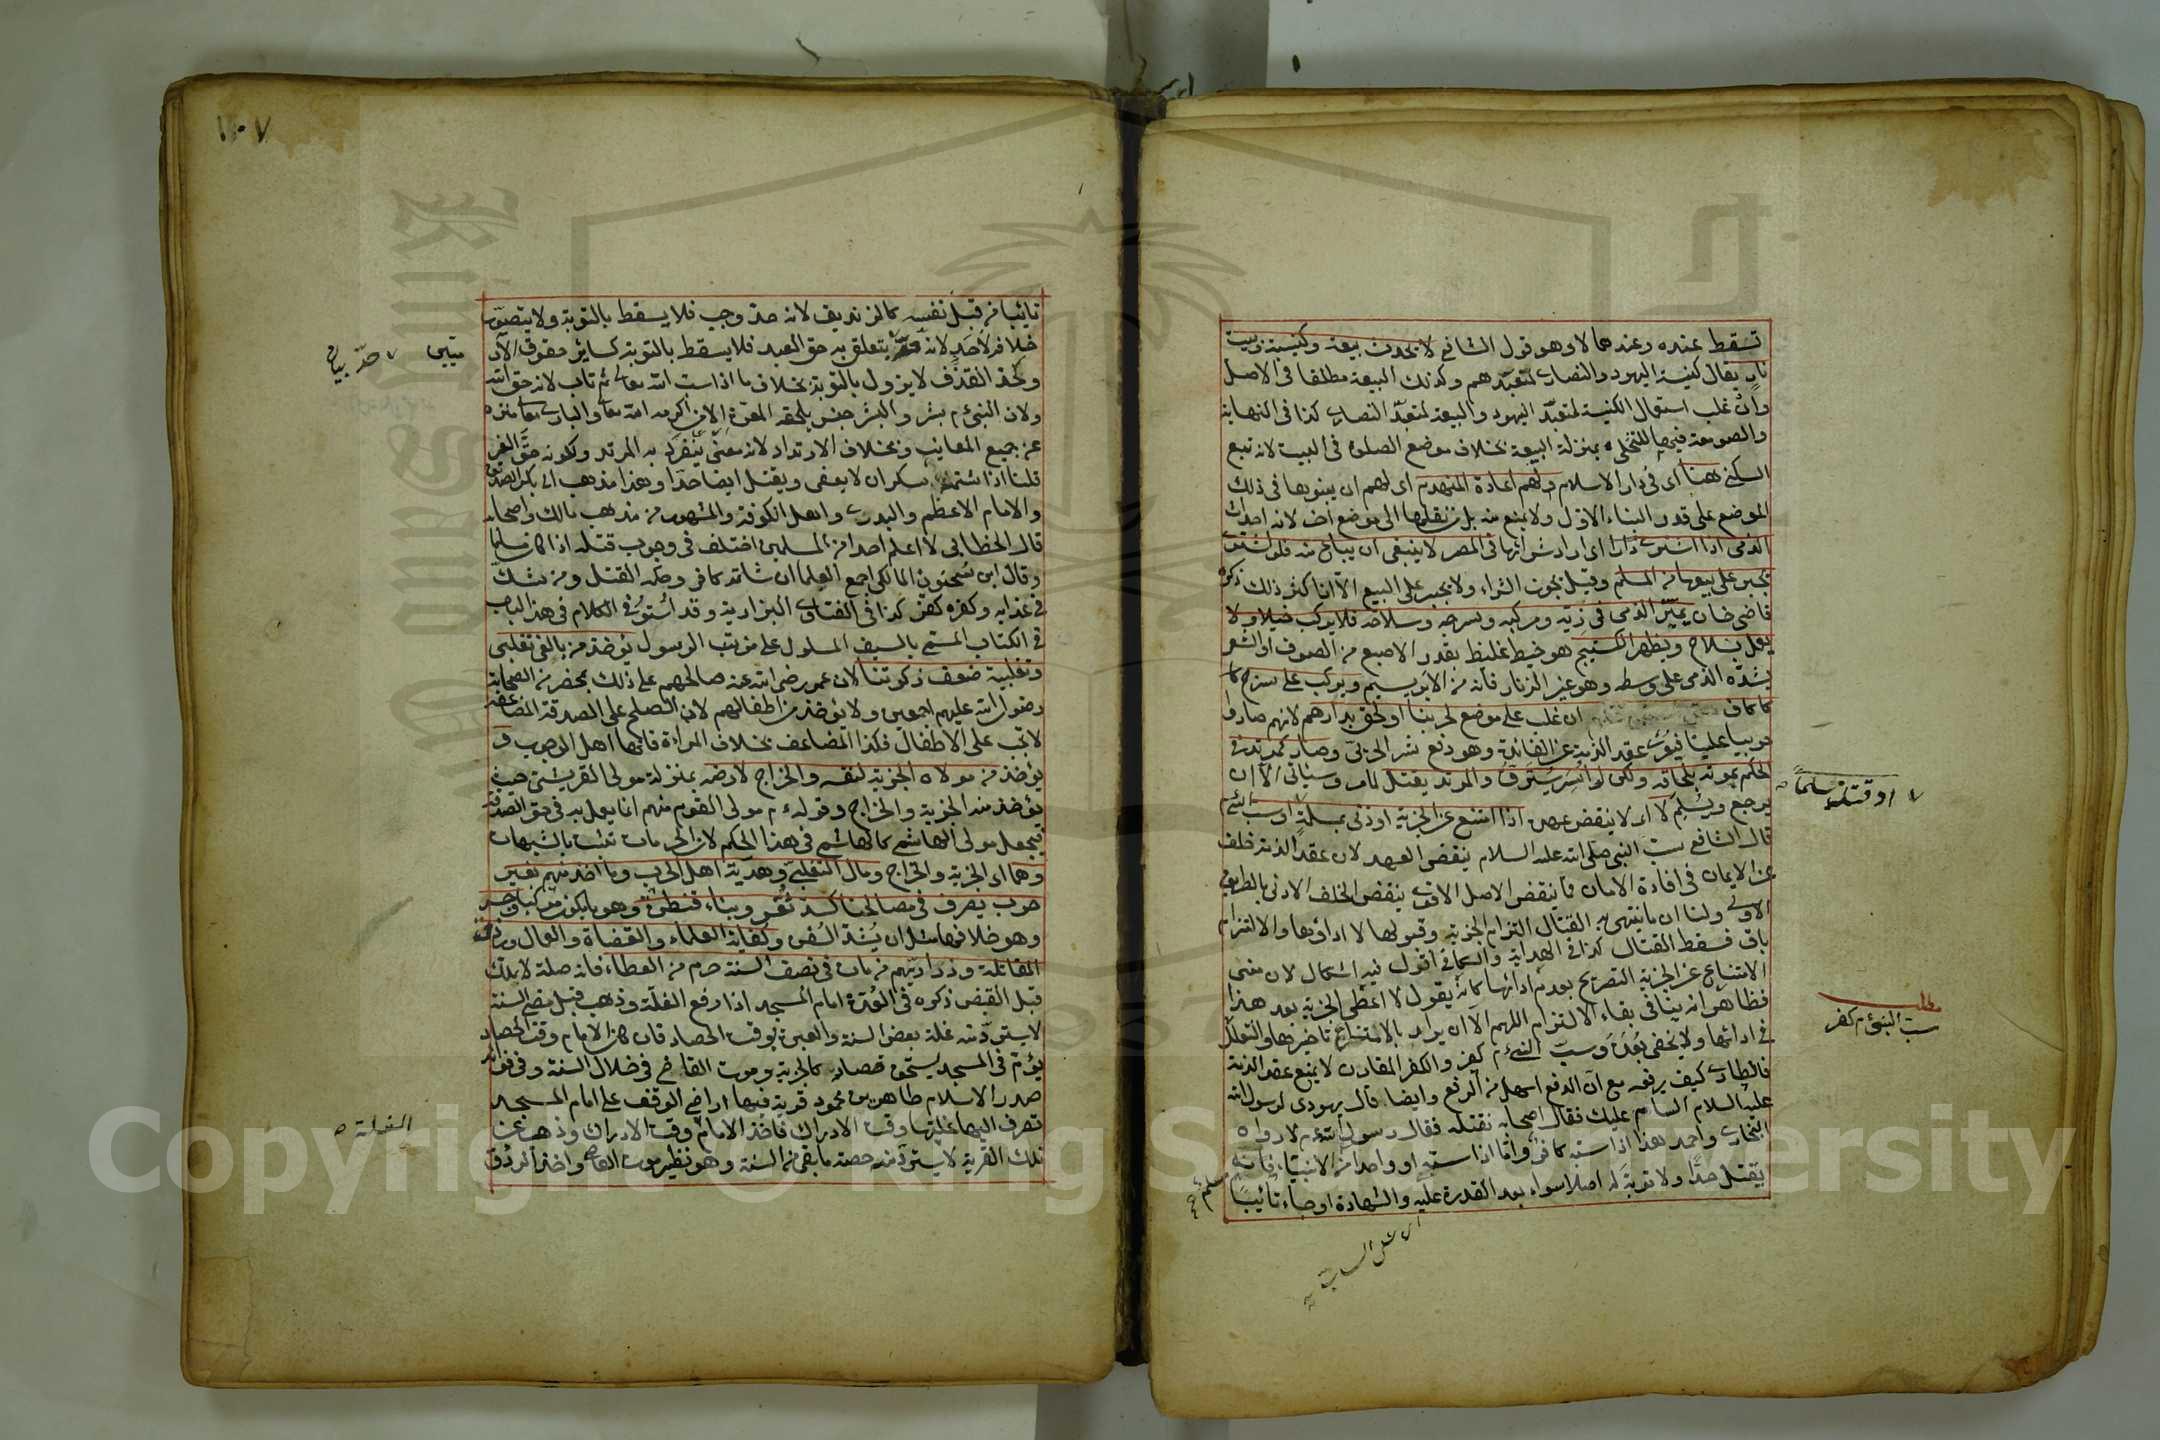 تسقط عنده وعندهما لا وهو قول الشافعي لا يحدث بيعة وكنيسة وبيت
نار يقال كنيسة اليهود والنصارى لمتعبدهم وكذلك البيعة مطلقا في الاصل
وان غلب استعمال الكنيسة لمتعبد اليهود والبيعة لمتعبد النصارى كذا في النهاية
والصومعة فيها للتخلى بمنزلة البيعة بخلاف موضع الصلوة في البيت لانه تبع
السكنى ههنا اى في دار الاسلام ولهم اعادة المنهدم اى لهم ان يبنوها في ذلك
الموضع على قدر البناء الاول ولا يمنع منه بل من نقلها الى موضع آخر لانه احداث
الذمى اذا اشترى دارا اى اراد شراءها في المصر لا ينبغى ان يباع منه فلو اشترى
يجبر على بيعها من المسلم وقيل يجوز الشراء ولا يجبر على البيع الا اذا كثر ذلك ذكره
قاضى خان يميز الذمى في زيه ومركبه وسرجه وسلاحه فلا يركب خيلا ولا
يعمل بسلاح ويظهر الكستيج هو خيط غليظ بقدر الاصبع من الصوف او الشعر
يشده الذمى على وسطه وهو غير الزنار فانه من الابريسم ويركب على سرج كا
كاكاف ان غلب على موضع لحربنا او لحق بدارهم لانهم صاروا
حربيا علينا فيعرى عقد الذمة عن الفائدة وهو دفع شر الحرب وصار كمرتد في
الحكم بموته بلحاقه ولكن لو اسر يسترق والمرتد يقتل لما مر وسيأتى الا ان
يرجع ويسلم لا اى لا ينقض عهده اذا امتنع عن الجزية او زنى بمسلمة او سب النبى م
قال الشافعى سب النبى صلى الله عليه السلام ينقض العهد لان عقد الذمة خلف
عن الايمان في افادة الامان فما ينقض الاصل الاقوى ينقض الخلف الادنى بالطريق
الاولى ولنا ان ما ينتهى به القتال التزام الجزية وقبولها لا اداؤها والالتزام
باق فسقط القتال كذا في الهداية والكافى اقول فيه اشكال لان معنى
الامتناع عن الجزية التصريح بعدم ادائها كانه يقول لا اعطى الجزية بعد هذا
فظاهر انه ينافى بقاء الالتزام اللهم الا ان يراد بالامتناع تاخيرها والتعلل
في ادائها ولا يخفى بعده وسب النبى م كفر والكفر المقارن لا يمنع عقد الذمة
فالطارى كيف يرفعه مع ان الدفع اسهل من الرفع وايضا قال يهودى لرسول الله
عليه السلام السام عليك فقال اصحابه نقتله فقال رسول الله م لا رواه
البخارى واحمد هذا اذا سبه كافر واما اذا سبه او واحدا من الانبياء مسلم فانه
يقتل حدا ولا توبة له اصلا سواء بعد القدرة عليه والشهادة او جاء تائبا
او قتل مسلما
مطلب
سب النبى م كفر
مسلم صح
١٠٧
تائبا من قبل نفسه كالزنديق لانه حد وجب فلا يسقط بالتوبة ولا يتصور
خلاف لاحد لانه حق يتعلق به حق العبد فلا يسقط بالتوبة كسائر حقوق الآد
وكحد القذف لا يزول بالتوبة بخلاف ما اذا سب الله تعالى ثم تاب لانه حق الله
ولان النبى م بشر والبشر جنس يلحقه المعرة الا من اكرمه الله تعالى والبارى تعالى منزه
عن جميع المعايب وبخلاف الارتداد لانه معنى ينفرد به المرتد ولكونه حق الغير
قلنا اذا شتمه سكران لا يعفى ويقتل ايضا حدا وهذا مذهب ابى بكر الصديق
والامام الاعظم والبدرى واهل الكوفة والمشهور من مذهب مالك واصحابه
قال الخطابى لا اعلم احدا من المسلمين اختلف في وجوب قتله اذا كان مسلما
وقال ابن سحنون المالكى اجمع العلماء ان شاتمه كافر وحكمه القتل ومن شك
في عذابه وكفره كفر كذا في الفتاوى البزازية وقد استوفى الكلام في هذا الباب
في الكتاب المسمى بالسيف المسلول على من سب الرسول يؤخذ من بالغى تغلبى
وتغلبية ضعف زكوتنا لان عمر رضى الله عنه صالحهم على ذلك بمحضر من الصحابة
رضوان الله عليهم اجمعين ولا يؤخذ من اطفالهم لان الصلح على الصدقة المضاعفة
لا تجب على الاطفال فكذا المضاعف بخلاف المرأة فانها اهل الوجوب و
يؤخذ من مولاه الجزية لنفسه والخراج لارضه بمنزلة مولى القريشى حيث
يؤخذ منه الجزية والخراج وقوله م مولى القوم منهم انما يعمل به في حق الصدقة
فيجعل مولى الهاشمى كالهاشمى في هذا الحكم لان الحرمات تثبت بالشبهات
وهما اى الجزية والخراج ومال التغلبى وهدية اهل الحرب وما اخذ منهم بغير
حرب يصرف في مصالحنا كسد ثغور وبناء قنطرة وهو ما يكون مركبا وجسر
وهو خلافها مثل ان يشد السفن وكفاية العلماء والقضاة والعمال ورزق
المقاتلة وذراريهم من مات في نصف السنة حرم من العطاء فانه صلة لا يملك
قبل القبض ذكره في العدة امام المسجد اذا رفع الغلة وذهب قبل مضى السنة
لا يسترد منه غلة بعض السنة والعبرة بوقت الحصاد فان كان الامام وقت الحصاد
يؤم في المسجد يستحق فصار كالجزية وموت القاضى في خلال السنة وفى فوائد
صدر الاسلام طاهر بن محمود قرية فيها اراضى الوقف على امام المسجد
تصرف اليها غلتها وقت الادراك فاخذ الامام وقت الادراك وذهب عن
تلك القرية لا يسترد منه حصة ما بقى من السنة وهو نظير موت القاضى واخذ الرزق
الغلة
Copyright © King Saud University